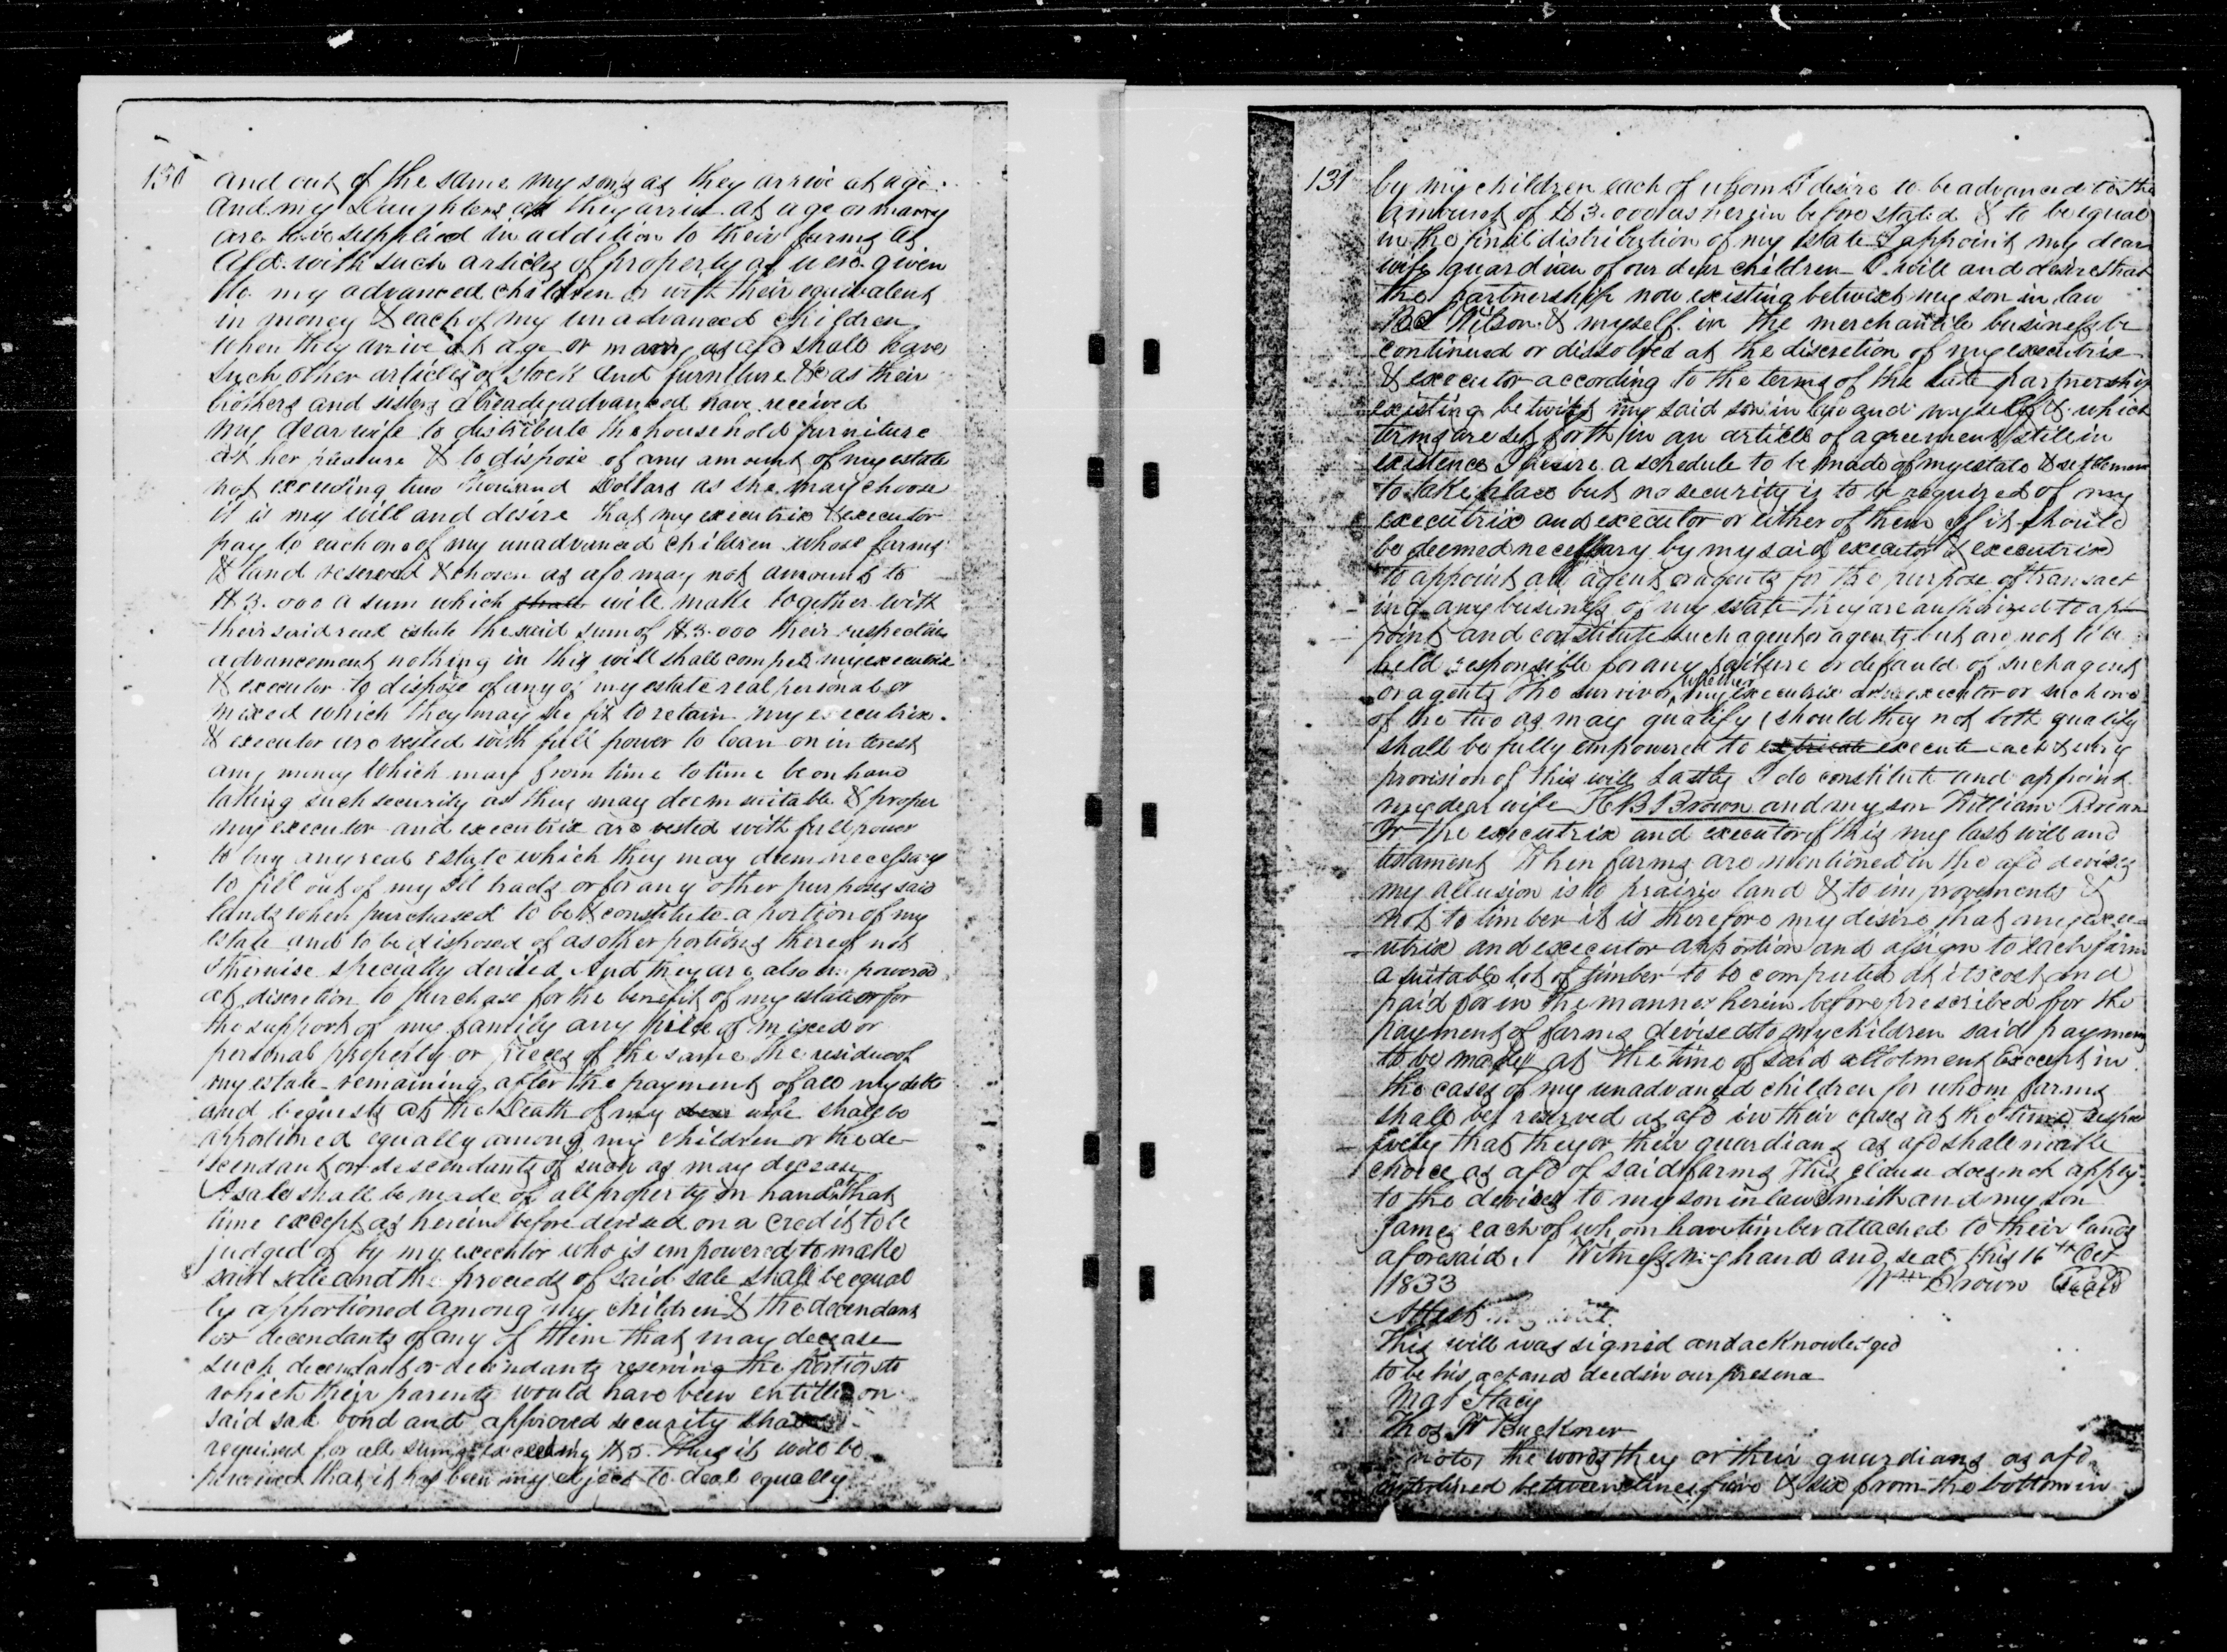 130
and out of the same my sons as they arrive at age
and my Daughters as they arrive at age or marry
are to be supplied in addition to their farms as
afd. with such articles of property as were given
to my advanced children or with their equivalent
in money & each of my unadvanced children
when they arive at age or marry as afd shall have
such other articles of stock and furniture &c as their
brothers and sisters already advanced have received
my dear wife to distribute the household furniture
at her pleasure & to dispose of any amount of my estate
not exceeding two thousand Dollars as she may choose
it is my will and desire that my executrix & executor
pay to each one of my unadvanced children whose farms
& land reserved & chosen as afd may not amount to
$3.000 a sum which shall will make together with
their said real estate the said sum of $3.000 their respective
advancement nothing in this will shall compel my executrix
& executor to dispose of any of my estate real personal or
mixed which they may see fit to retain my executrix
& executor are vested with full power to loan on interest
any money which may from time to time be on hand
taking such security as they may deem suitable & proper
my executor and executrix are vested with full power
to buy any real estate which they may deem necessary
to fill out of my old tracts or for any other purposes said
lands when purchased to be & constitute a portion of my
estate and to be disposed of as other portions thereof not
otherwise specially devised And they are also empowered
at discretion to purchase for the benefit of my estate or for
the support of my family any piece of mixed or
personal property or pieces of the same the residue of
my estate remaining after the payment of all my debts
and bequests at the Death of my dear wife shall be
apportioned equally among my children or the de-
scendant or descendants of such as may decease
A sale shall be made of all property on hand at that
time except as herein before devised on a credit to be
judged of by my executor who is empowered to make
said sale and the proceeds of said sale shall be equal
ly apportioned among my children & the decendant
or decendants of any of them that may decease
such decendant or decendants reserving the portions to
which their parents would have been entitled on
said sale bond and approved security shall
required for all sums exceeding $5. Thus it will be
perceived that it has been my object to deal equally
131
by my children each of whom I desire to be advanced to the
amount of $3.000 as herein before stated & to be equal
in the final distribution of my estate I appoint my dear
wife guardian of our dear children I will and desire that
the partnership now existing betwixt my son in law
Wilson & myself in the merchantile business be
continued or dissolved at the discretion of my executrix
& executor according to the terms of the late partnership
existing betwixt my said son in law and myself & which
terms are set forth in an article of agreement still in
existence I desire a schedule to be made of my estate & settlement
to take place but no security is to be required of my
executrix and executor or either of them If it should
be deemed necessary by my said executor & executrix
to appoint an agent or agents for the purpose of transact
ing any business of my estate they are authorized to ap-
point and constitute such agent or agents but are not to be
held responsible for any failure or defauld of such agent
or agents The survivor whether my executrix or my executor or such one
of the two as may qualify (should they not both qualify
shall be fully empowered to extricate execute each & every
provision of this will Lastly I do constitute and appoint
my dear wife H B Brown and my son William Brown
Jr the executrix and executor of this my last will and
testament When farms are mentioned in the afd devises
my allusion is to prairie land & to improvements &
not to timber it is therefore my desire that my exec-
utrix and executor apportion and assign to each farm
a suitable lot of timber to be computed at its cost and
paid for in the manner herein before prescribed for the
payment of farms devised to my children said payment
to be made at the time of said allotment Except in
the cases of my unadvanced children for whom farms
shall be reserved as afd in their cases at the times respec
tively that they or their guardians as afd shall make
choice as afd of said farms This clause does not apply
to the devises to my son in law Smith and my son
James each of whom have timber attached to their lands
aforesaid. Witness my hand and seal this 16th Oct
1833 Wm Brown Seal
Attest
This will was signed and acknowledged
to be his act and deed in our presence
Mat Stacy
Thos W Buckner
note, the words they or their guardians as afd
interlined between lines five & six from the bottom in